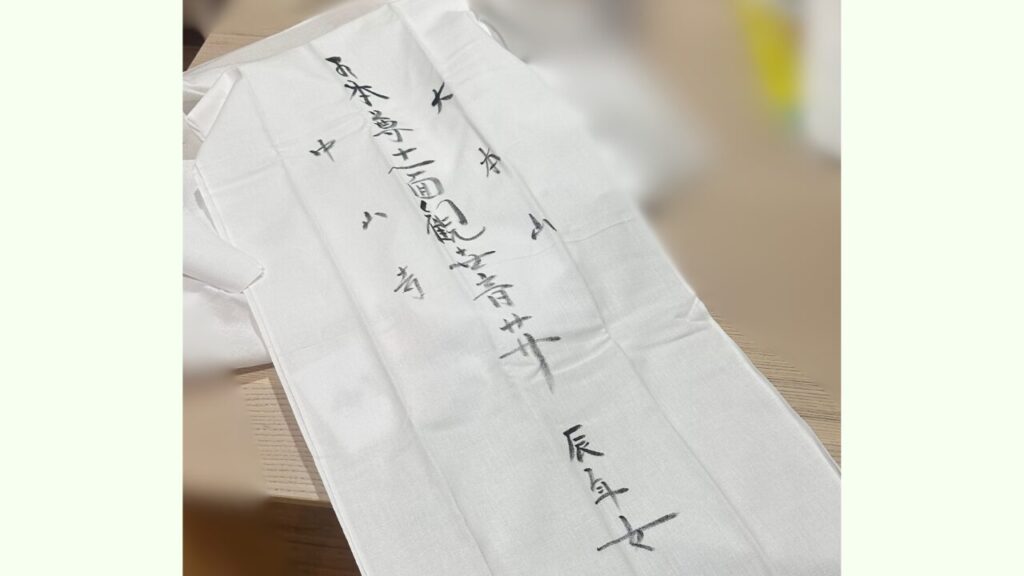 大本山
御本尊十一面観世音𦬇 辰年女
中山寺